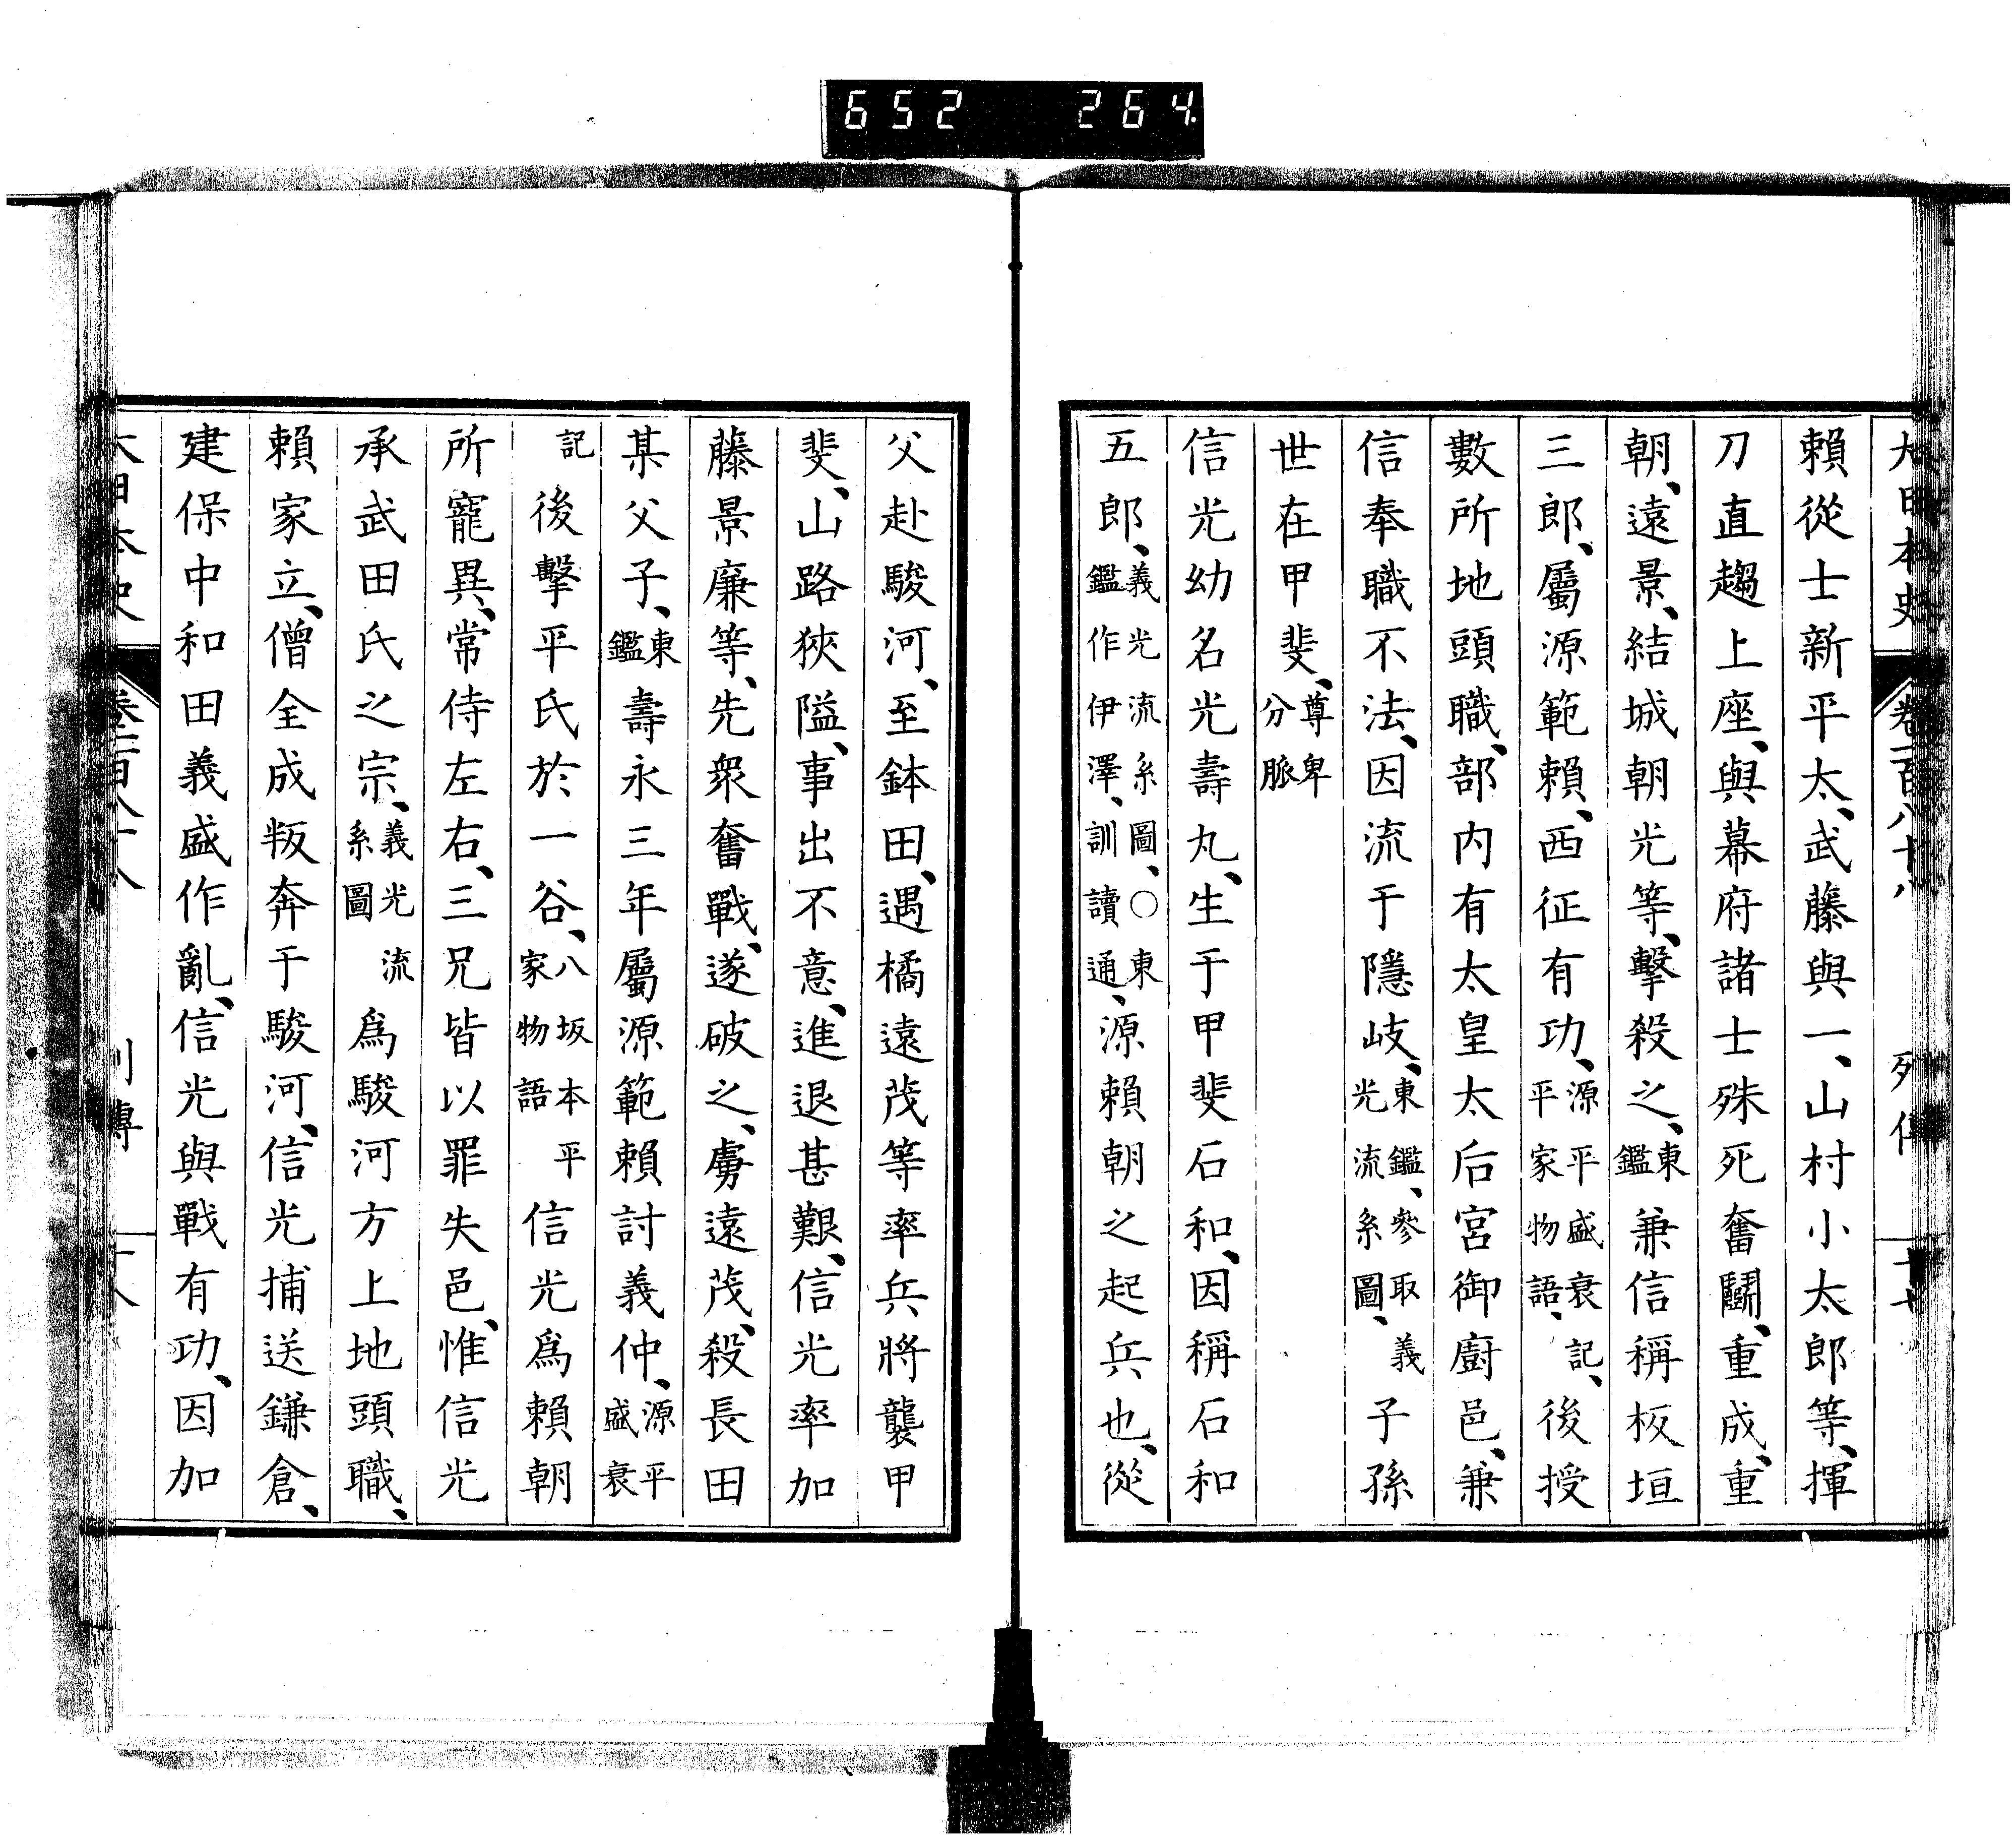 652 264.
大日本史 卷一百八十八 列傳 十七
賴從士新平太、武藤與一、山村小太郎等、揮
刀直趨上座、與幕府諸士殊死奮鬭、重成、重
朝、遠景、結城朝光等、擊殺之、東鑑兼信稱板垣
三郎、屬源範賴、西征有功、源平盛衰記、平家物語、後授
數所地頭職、部内有太皇太后宮御廚邑、兼
信奉職不法、因流于隱岐、東鑑、參取義光流系圖、子孫
世在甲斐、尊卑分脈
信光幼名光壽丸、生于甲斐石和、因稱石和
五郎、義光流系圖、○東鑑作伊澤、訓讀通、源賴朝之起兵也、從
父赴駿河、至鉢田、遇橘遠茂等率兵將襲甲
斐、山路狹隘、事出不意、進退甚艱、信光率加
藤景廉等、先衆奮戰、遂破之、虜遠茂、殺長田
某父子、東鑑壽永三年屬源範賴討義仲、源平盛衰
記後擊平氏於一谷、八坂本平家物語信光爲賴朝
所寵異、常侍左右、三兄皆以罪失邑、惟信光
承武田氏之宗、義光流系圖爲駿河方上地頭職、
賴家立、僧全成叛奔于駿河、信光捕送鎌倉、
建保中和田義盛作亂、信光與戰有功、因加
大日本史 卷一百八十八 列傳 十八